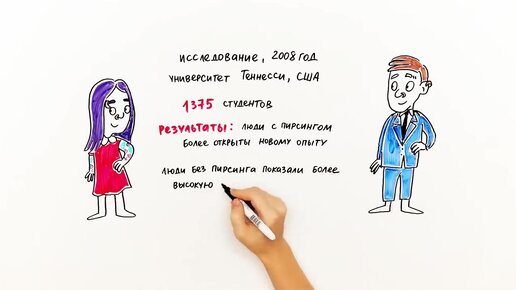 исследование, 2008 год
университет Теннесси, США
1375 студентов
Результаты: люди с пирсингом
более открыты новому опыту
люди без пирсинга показали более
высокую